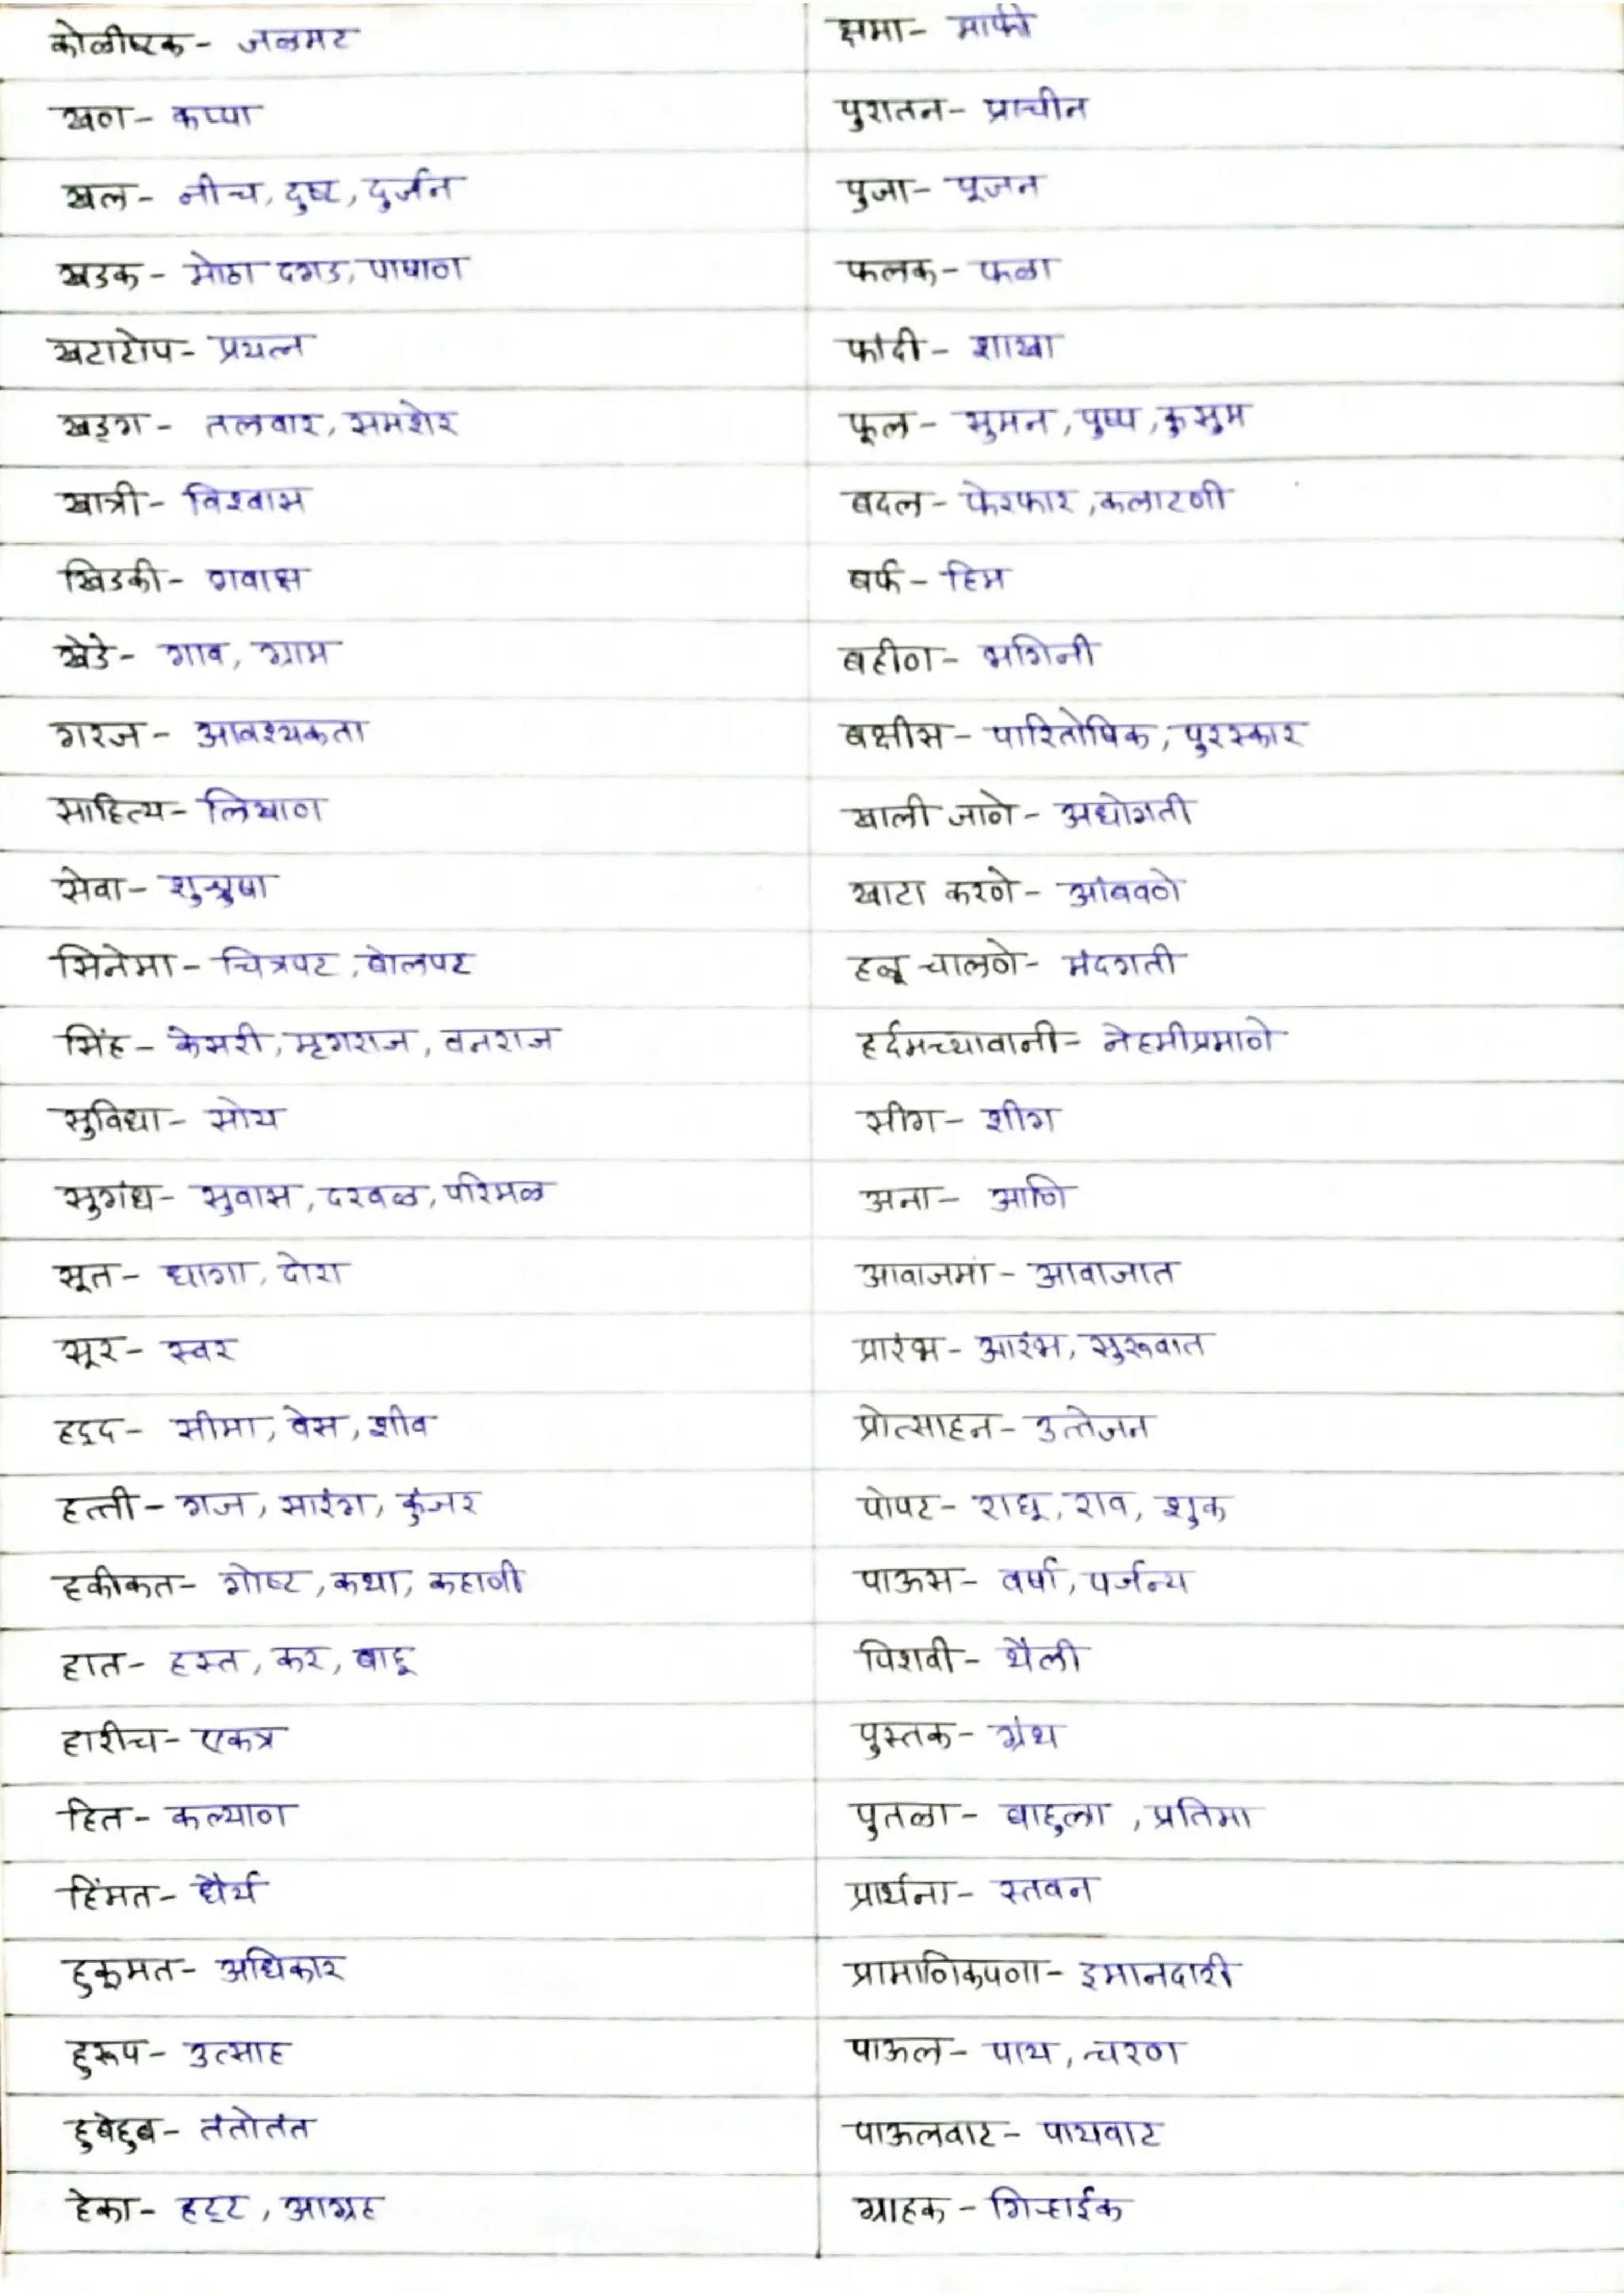 कोळीष्टक- जळमट
खण- कप्पा
खल- नीच, दुष्ट, दुर्जन
खडक- मोठा दगड, पाषाण
खटाटोप- प्रयत्न
खड्ग- तलवार, समशेर
खात्री- विश्वास
खिडकी- गवाक्ष
खेडे- गाव, ग्राम
गरज- आवश्यकता
साहित्य- लिखाण
सेवा- शुश्रुषा
सिनेमा- चित्रपट, बोलपट
सिंह- केसरी, मृगराज, वनराज
सुविधा- सोय
सुगंध- सुवास, दरवळ, परिमळ
सूत- धागा, दोरा
सूर- स्वर
हद्द- सीमा, वेस, शीव
हत्ती- गज, सारंग, कुंजर
हकीकत- गोष्ट, कथा, कहाणी
हात- हस्त, कर, बाहू
हारीच- एकत्र
हित- कल्याण
हिंमत- धैर्य
हुकूमत- अधिकार
हुरूप- उत्साह
हुबेहुब- तंतोतंत
हेका- हट्ट, आग्रह
क्षमा- माफी
पुरातन- प्राचीन
पुजा- पूजन
फलक- फळा
फांदी- शाखा
फूल- सुमन, पुष्प, कुसुम
बदल- फेरफार, कलाटणी
बर्फ- हिम
बहीण- भगिनी
बक्षीस- पारितोषिक, पुरस्कार
खाली जाणे- अधोगती
खाटा करणे- आंबवणे
हळू चालणे- मंदगती
हर्दमच्यावानी- नेहमीप्रमाणे
सीग- शीग
अना- आणि
आवाजमां- आवाजात
प्रारंभ- आरंभ, सुरूवात
प्रोत्साहन- उत्तेजन
पोपट- राघू, राव, शुक
पाऊस- वर्षा, पर्जन्य
पिशवी- थैली
पुस्तक- ग्रंथ
पुतळा- बाहुला, प्रतिमा
प्रार्थना- स्तवन
प्रामाणिकपणा- इमानदारी
पाऊल- पाय, चरण
पाऊलवाट- पायवाट
ग्राहक- गिऱ्हाईक